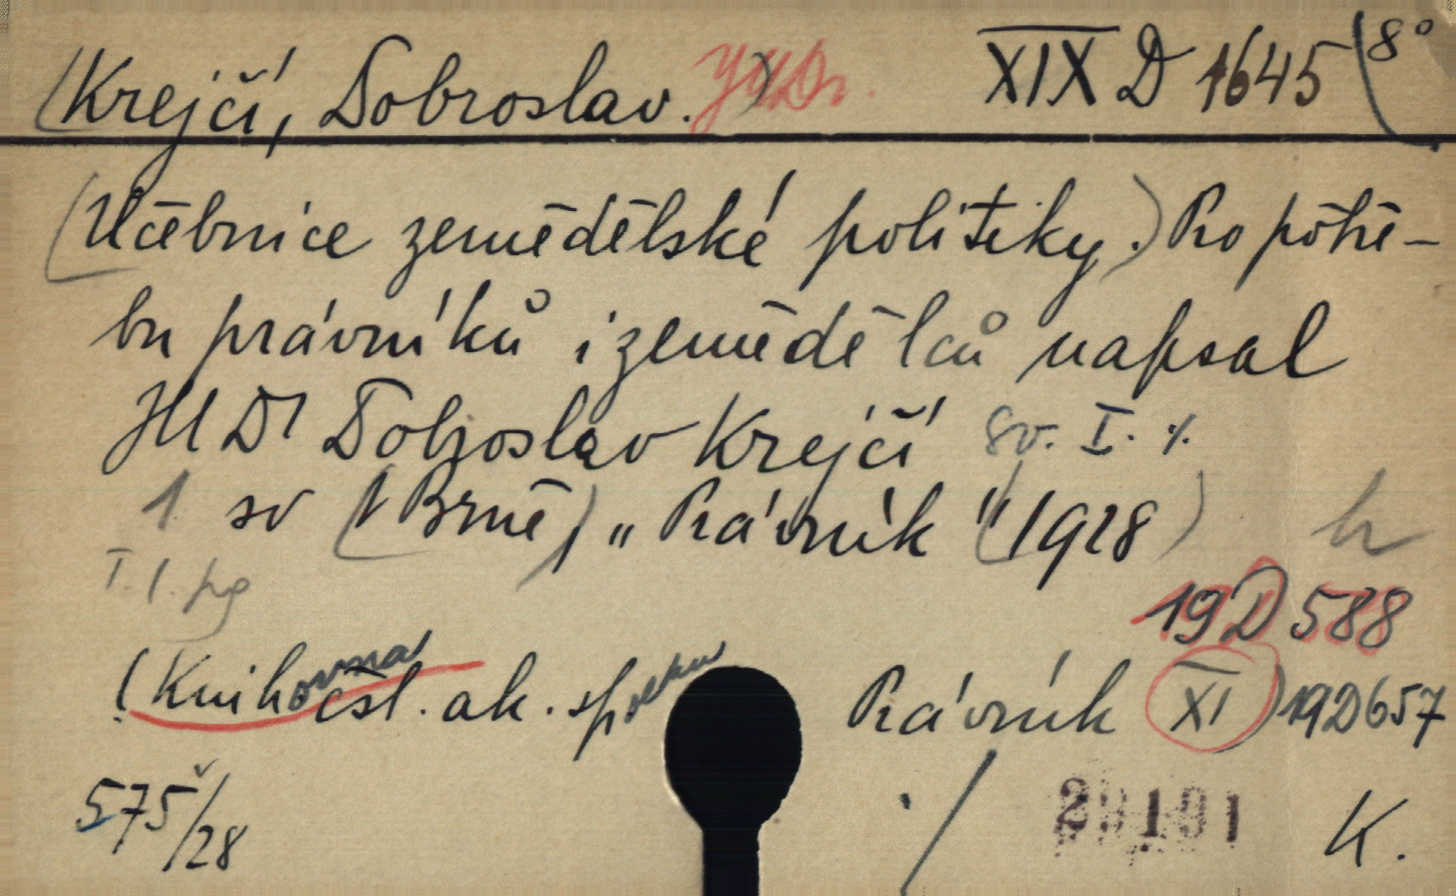 (Krejčí, Dobroslav. JUDr. XIX D 1645 (8°
(Učebnice zemědělské politiky.) Pro potře-
bu právníků i zemědělců napsal
JUDr Dobroslav Krejčí Sv. I. %
1 sv (V Brně), „Právník" (1928) h
I. 1. pg
19D 588
(Knihovna čsl. ak. spolku Právník XI) 19D657
575/28 ./ 29191 K.